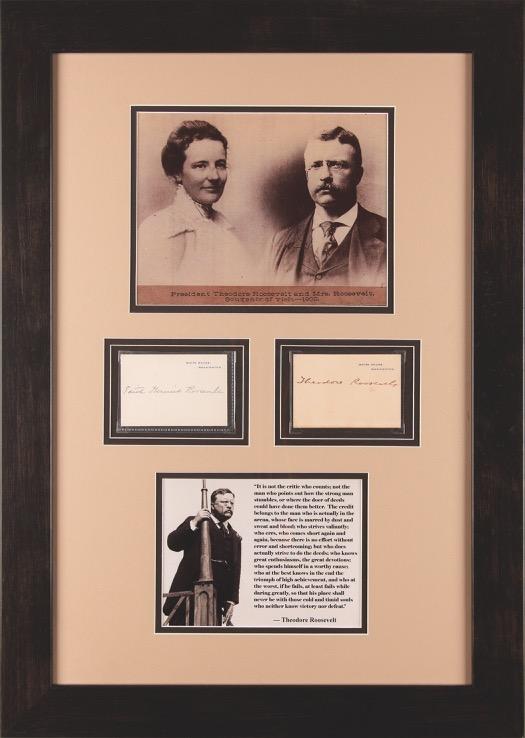 President Theodore Roosevelt and Mrs. Roosevelt.
Souvenir of visit—1902.
WHITE HOUSE,
WASHINGTON.
Edith Kermit Roosevelt
WHITE HOUSE,
WASHINGTON.
Theodore Roosevelt
"It is not the critic who counts; not the
man who points out how the strong man
stumbles, or where the doer of deeds
could have done them better. The credit
belongs to the man who is actually in the
arena, whose face is marred by dust and
sweat and blood; who strives valiantly;
who errs, who comes short again and
again, because there is no effort without
error and shortcoming; but who does
actually strive to do the deeds; who knows
great enthusiasms, the great devotions;
who spends himself in a worthy cause;
who at the best knows in the end the
triumph of high achievement, and who at
the worst, if he fails, at least fails while
daring greatly, so that his place shall
never be with those cold and timid souls
who neither know victory nor defeat."
— Theodore Roosevelt